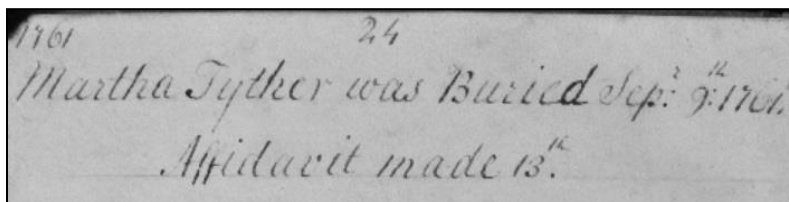 1761 24
Martha Tyther was Buried Sepr. 9th. 1761.
Affidavit made 13th.